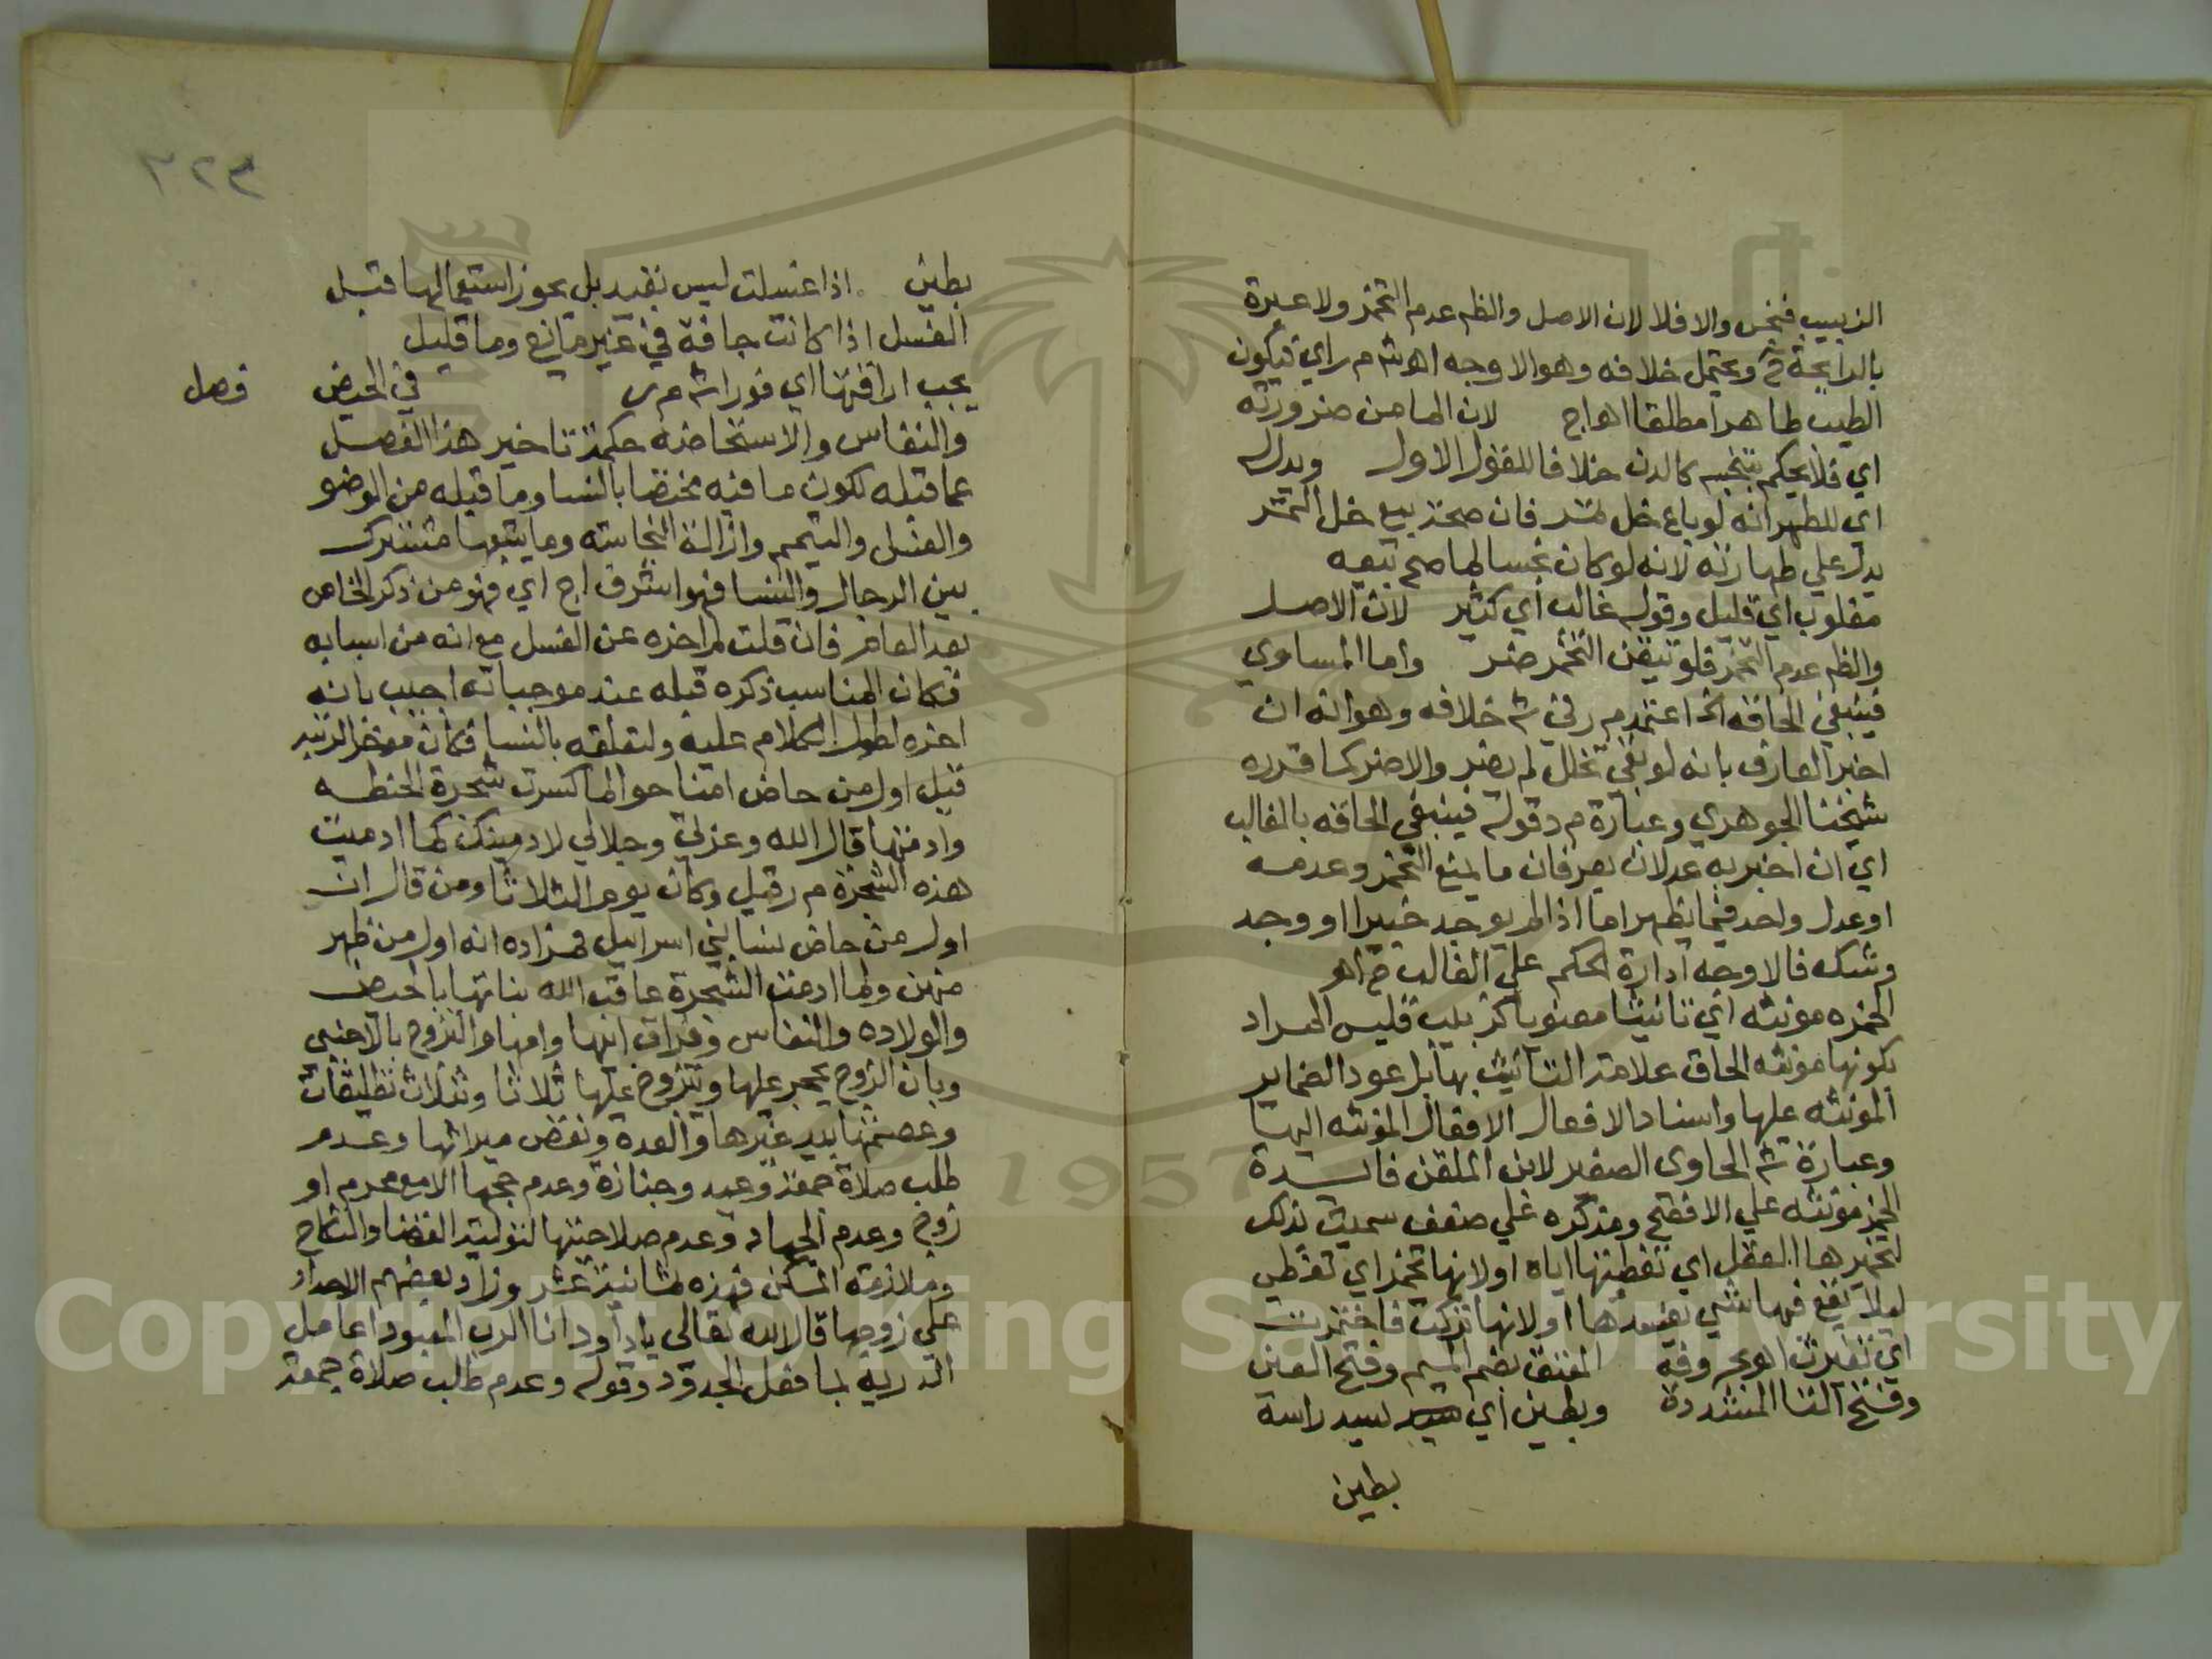 الزبيب فنجس والا فلا لان الاصل والظم عدم التخمر ولا عبرة
بالرايحة ح ويحتمل خلافه وهو الاوجه اه ش م ر اي فيكون
الطيب طاهرا مطلقا اه اج لان لها من ضرورته
اي فلا يحكم بتنجيسه كالدن خلافا للقول الاول ويدل له
اي للطهر انه لو باع خل تمر فان صحة بيع خل التمر
يدل علي طهارته لانه لو كان نجسا لما صح بيعه
مغلوب اي قليل وقوله غالب اي كثير لان الاصل
والظم عدم التخمر فلو تيقن التخمر ضر واما المساوي
فينبغي الحاقه الخ اعتمد م ر في ش خلافه وهو انه ان
اخبر العارف بانه لو بقي تخلل لم يضر والا ضر كما قرره
شيخنا الجوهري وعبارة م د قوله فينبغي الحاقه بالغالب
اي ان اخبر به عدلان يعرفان ما يمنع التخمر وعدمه
او عدل واحد فيما يظهر اما اذا لم يوجد خبيرا او وجد
وشك فالاوجه ادارة الحكم علي الغالب ح اهر
الخمره مونثه اي تانيثا معنويا كزينب فليس المراد
بكونها مونثه الحاق علامة التانيث بها بل عود الضماير
المونثه عليها واسناد الافعال الافعال المونثه اليها
وعبارة ش الحاوي الصغير لابن الملقن فايدة
الخمر مونثه علي الافصح ومذكره علي ضعف سميت بذلك
لتخميرها العقل اي تغطيتها اياه او لانها تخمر اي تغطي
ليلا يقع فيها شي يفسدها او لانها تركت فاختمرت
اي تغيرت اهر بحروفه المعتق بضم الميم وفتح العين
وفتح التا المشددة وبطين اي سيد راسه
بطين
٣٢٣
بطين اذا غسلت ليس بقيد بل يجوز استعمالها قبل
الغسل اذا كانت جافة في غير مايع وما قليل
يجب اراقتها اي فورا ش م ر فصل في الحيض
والنفاس والاستحاضه حكمة تاخير هذا الفصل
عما قبله لكون ما فيه مختصا بالنسا وما قبله من الوضو
والغسل والتيمم وازالة النجاسه وما يتبعها مشترك
بين الرجال والنسا فهو اشرف اج اي فهو من ذكر الخاص
بعد العام فان قلت لم اخره عن الغسل مع انه من اسبابه
فكان المناسب ذكره قبله عند موجباته اجيب بانه
اخره لطول الكلام عليه ولتعلقه بالنسا فكان موخر الرتبه
قيل اول من حاض امنا حوا لما كسرت شجرة الحنطه
وادمتها قال الله وعزتي وجلالي لادمينك كما ادميت
هذه الشجرة م ر قيل وكان يوم الثلاثا ومن قال ان
اول من حاض نسا بني اسراييل فمراده انه اول من ظهر
منهن ولما ادمت الشجرة عاقب الله بناتها بالحيض
والولاده والنفاس وفراق ابيها وامها والتزوج بالاجنبي
وبان الزوج يحجر عليها ويتزوج عليها ثلاثا وثلاث تطليقات
وعصمتها بيد غيرها والعدة ونقص ميراثها وعدم
طلب صلاة جمعة وعيد وجنازة وعدم حجها الا مع محرم او
زوج وعدم الجهاد وعدم صلاحيتها لتولية القضا والنكاح
وملازمة المسكن فهذه ثمانية عشر وزاد بعضهم الاحداد
علي زوجها قال الله تعالى ياداود انا الرب المعبود اعامل
الذرية بما فعل الجدود وقوله وعدم طلب صلاة جمعة
Copyright © King Saud University
1957